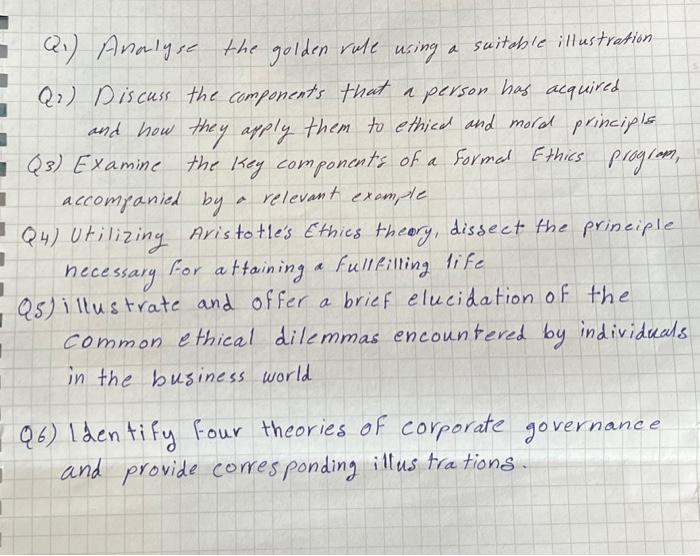 Q1) Analyse the golden rule using a suitable illustration
Q2) Discuss the components that a person has acquired
and how they apply them to ethical and moral principle
Q3) Examine the key components of a formal Ethics program,
accompanied by a relevant example
Q4) Utilizing Aristotle's Ethics theory, dissect the principle
necessary for attaining a fullfilling life
Q5) illustrate and offer a brief elucidation of the
common ethical dilemmas encountered by individuals
in the business world
Q6) Identify four theories of corporate governance
and provide corresponding illustrations.